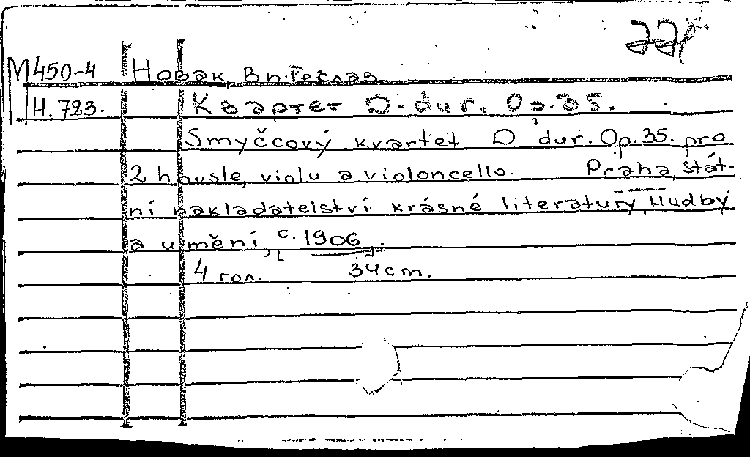 22
M450-4 Новак, Витезлав
Н. 723. Квартет D-dur. Op. 35.
Smyčcový kvartet D dur. Op. 35. pro
2 housle, violu a violoncello. Praha, stát-
ní nakladatelství krásné literatury, hudby
a umění, c. 1906.
4 гол. 34 cm.